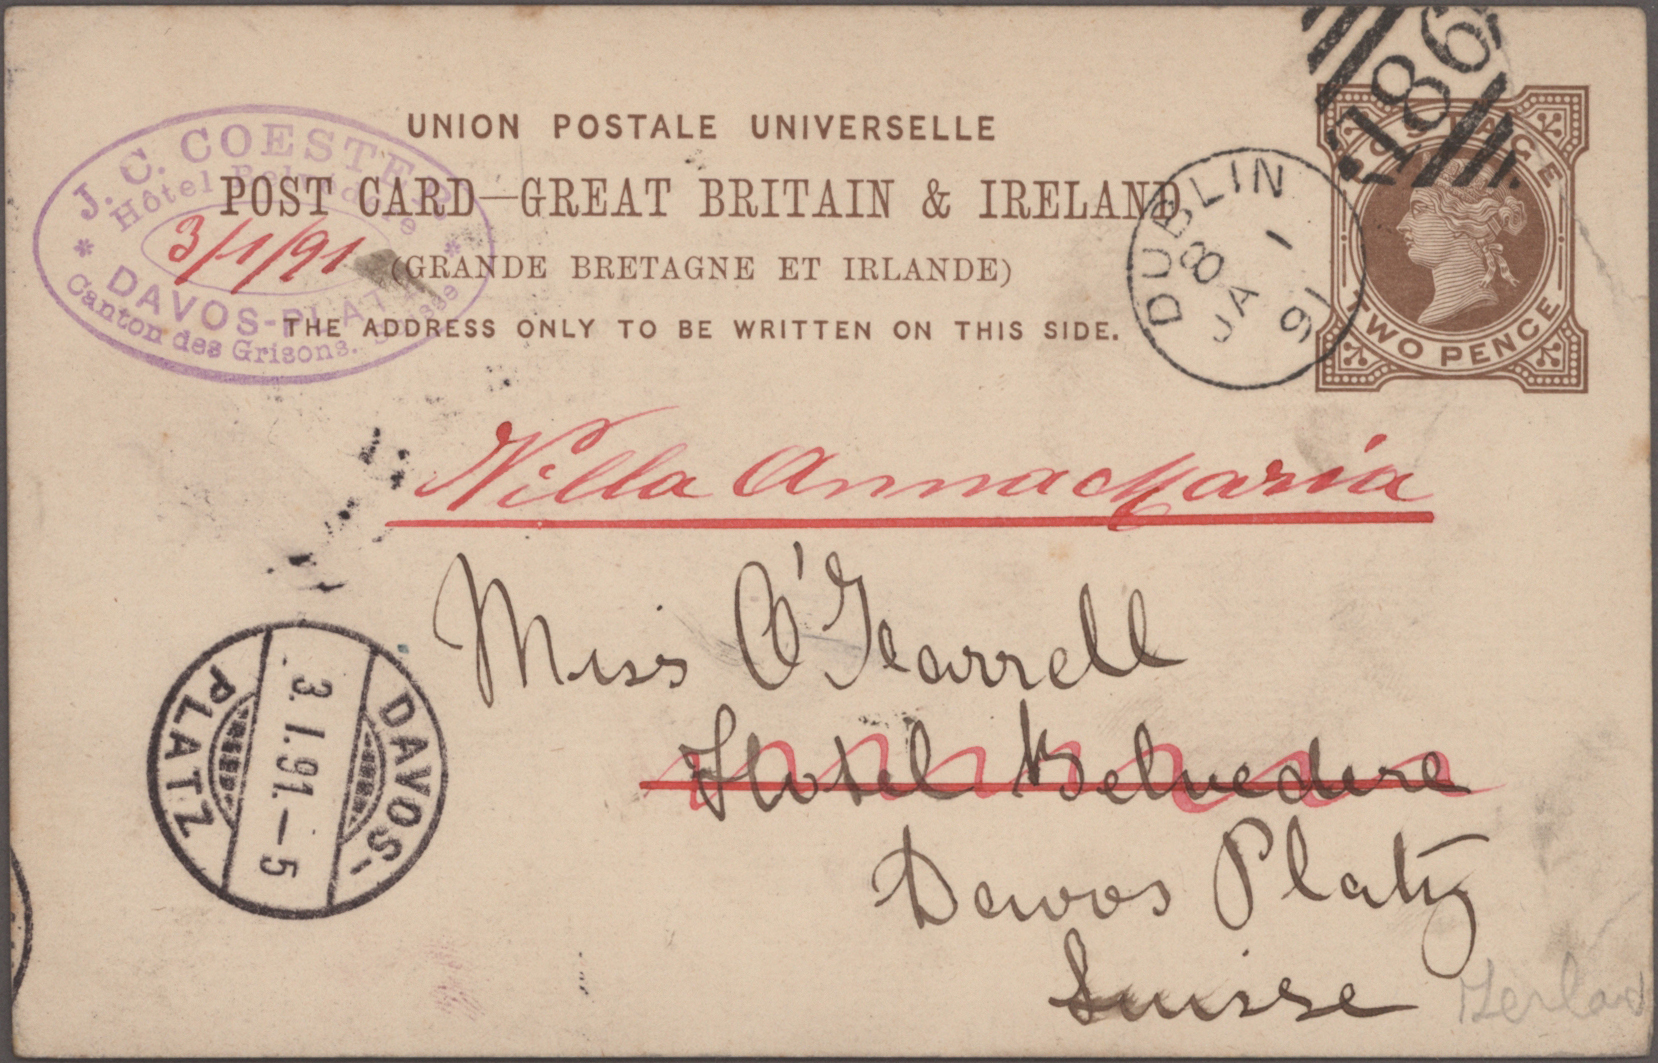 UNION POSTALE UNIVERSELLE
POST CARD—GREAT BRITAIN & IRELAND
(GRANDE BRETAGNE ET IRLANDE)
THE ADDRESS ONLY TO BE WRITTEN ON THIS SIDE.
J. C. COESTER
Hôtel Belvédère
3/1/91
* DAVOS-PLATZ *
Canton des Grisons. Suisse
186
DUBLIN
8 1
JA
91
POSTAGE
TWO PENCE
Villa Anna Maria
Miss O'Gearrell
Hotel Belvedere
Davos Platz
Suisse
DAVOS-
3.I.91.–5
PLATZ